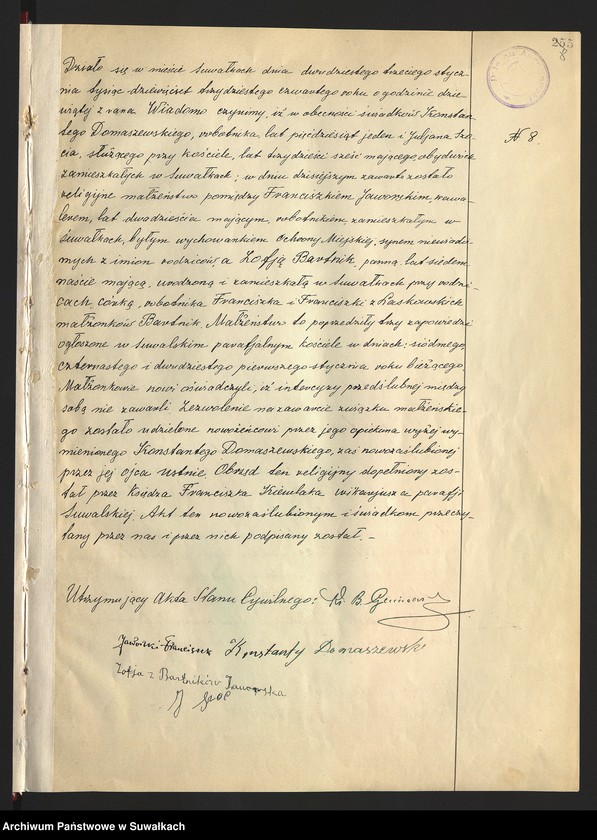 253
8
№ 8.
Działo się w mieście Suwałkach dnia dwudziestego trzeciego stycz-
nia tysiąc dziewięćset trzydziestego czwartego roku o godzinie dzie-
wiątej z rana. Wiadomo czynimy, iż w obecności świadków Konstan-
tego Domaszewskiego, robotnika, lat pięćdziesiąt jeden i Juljana
służącego przy kościele, lat trzydzieści sześć mającego, obydwóch
zamieszkałych w Suwałkach; w dniu dzisiejszym zawarte zostało
religijne małżeństwo pomiędzy Franciszkiem Jaworskim, kawa-
lerem, lat dwadzieścia mającym, robotnikem, zamieszkałym w
Suwałkach, byłym wychowankiem Ochrony Miejskiej, synem niewiado-
mych z imion rodziców a Zofją Bartnik, panną, lat siedem-
naście mającą, urodzoną i zamieszkałą w Suwałkach przy rodzi-
cach, córką, robotnika Franciszka i Franciszki z Laskowskich
małżonków Bartnik. Małżeństwo to poprzedziły trzy zapowiedzi
ogłoszone w Suwalskim parafjalnym kościele w dniach: siódmego,
czternastego i dwudziestego pierwszego stycznia roku bieżącego.
Małżonkowie nowi oświadczyli, iż intercyzy przedślubnej między
sobą nie zawarli. Zezwolenie na zawarcie związku małżeńskie-
go zostało udzielone nowożeńcowi przez jego opiekuna wyżej wy-
mienionego Konstantego Domaszewskiego, zaś nowozaślubionej
przez jej ojca ustnie. Obrzęd ten religijny dopełniony zos-
tał przez Księdza Franciszka Kiemlaka wikarjusza parafji
Suwalskiej. Akt ten nowozaślubionym i świadkom przeczy-
tany przez nas i przez nich podpisany został. –
Utrzymujący Akta Stanu Cywilnego: Ks. B.
Jaworski Franciszek Konstanty Domaszewski
Zofja z Bartników Jaworska
J
Archiwum Państwowe w Suwałkach